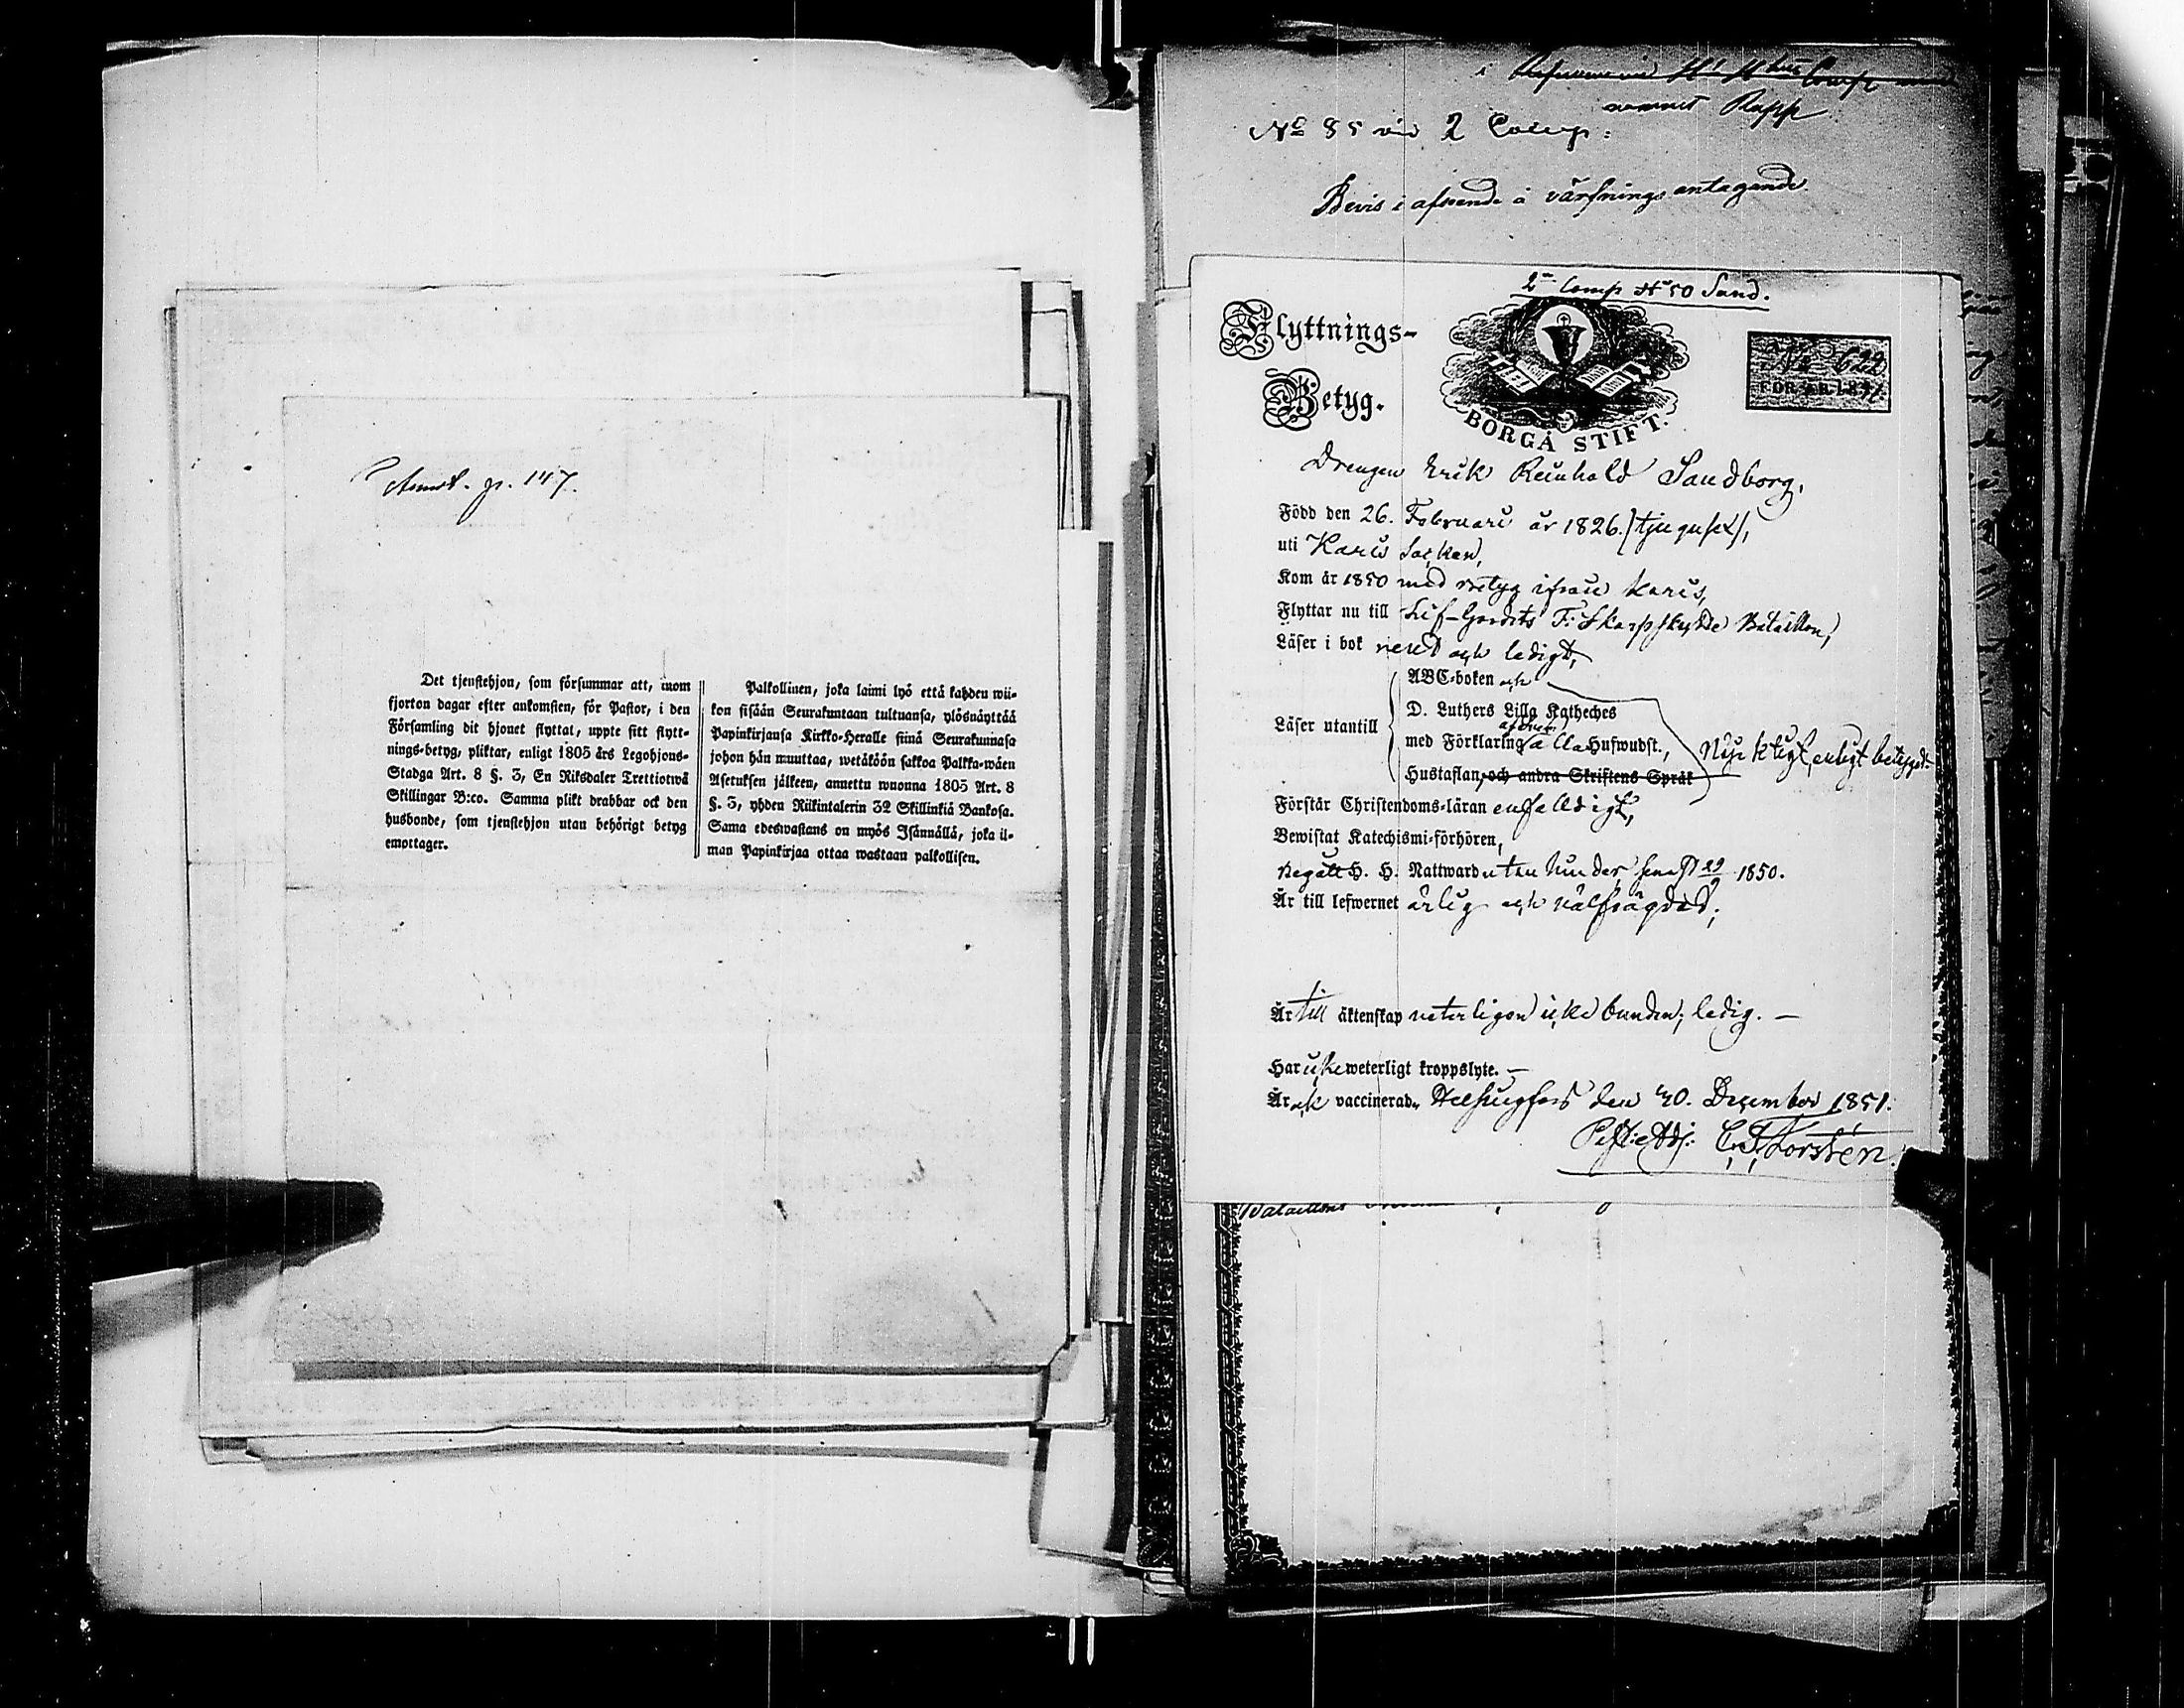 Annot. p. 147.
Det tjenstehjon, som försummar att, inom
fjorton dagar efter ankomsten, för Pastor, i den
Församling dit hjonet flyttat, uppte sitt flytt-
nings-betyg, pliktar, enligt 1805 års Legohjons-
Stadga Art. 8 §. 3, En Riksdaler Trettiotwå
Skillingar B:co. Samma plikt drabbar ock den
husbonde, som tjenstehjon utan behörigt betyg
emottager.
Palkollinen, joka laimi lyö että kahden wii-
kon sisään Seurakuntaan tultuansa, ylösnäyttää
Papinkirjansa Kirkko-Heralle siinä Seurakunnasa
johon hän muuttaa, wetäköön sakkoa Palkka-wäen
Asetuksen jälkeen, annettu wuonna 1805 Art. 8
§. 3, yhden Riikintalerin 32 Skillinkiä Bankosa.
Sama edeswastans on myös Isännällä, joka il-
man Papinkirjaa ottaa wastaan palkollisen.
namnet Rapp
No 85 vid 2 Comp:
Bevis i afseende å värfnings antagande
2n Comp No 50 Sand.
Flyttnings-
Betyg.
BORGÅ STIFT.
No 622
FÖR ÅR 1851
Drengen Erik Reinhold Sandborg,
Född den 26. Februari år 1826. (tjugusex),
uti Karis Socken,
Kom år 1850 med betyg ifrån Karis,
Flyttar nu till Lif-Gardets F: Skarpskytte Bataillon,
Läser i bok rent och ledigt,
ABC-boken och
D. Luthers Lilla Katheches
Läser utantill
med Förklaring Hufwudst.,
Hustaflan, och andra Skriftens Språk
enligt betyget.
Förstår Christendoms-läran enfaldigt,
Bewistat Katechismi-förhören,
Begått H. H. Nattward utan hinder senast 29/9 1850.
Är till lefwernet ärlig och välfrägdad;
Är till äktenskap veterligen icke bunden; ledig. —
Har icke weterligt kroppslyte. —
Är ock vaccinerad. Helsingfors den 30. December 1851.
Past: Adj: C. F. Forstén.
Bataillons